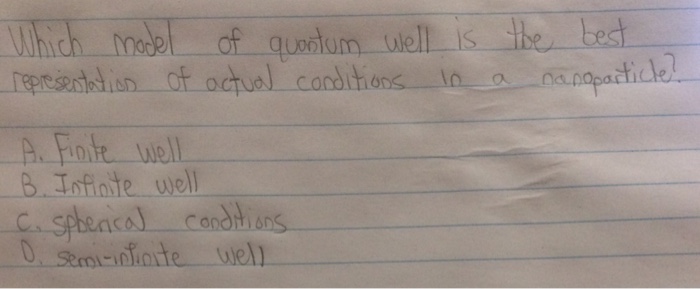 Which model of quantum well is the best
representation of actual conditions in a nanoparticle?
A. Finite well
B. Infinite well
C. spherical conditions
D. semi-infinite well